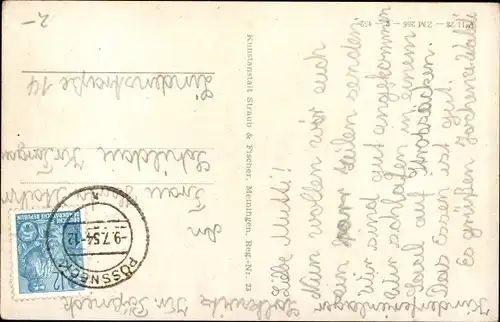 Liebe Mutti!
Nun wollen wir auch
ein paar Zeilen senden.
Wir sind gut angekommen
wir schlafen in einem
Saal auf Strohsäcken.
Das Essen ist gut.
Es grüßen
Kinderferienlager
Kr. Pößneck
An
Frau
Schildau Kr. Torgau
Lindenstraße 14
2,-
DEUTSCHE DEMOKRATISCHE REPUBLIK
PÖSSNECK
-9.7.54-12
Kunstanstalt Straub & Fischer, Meiningen, Reg.-Nr. 23